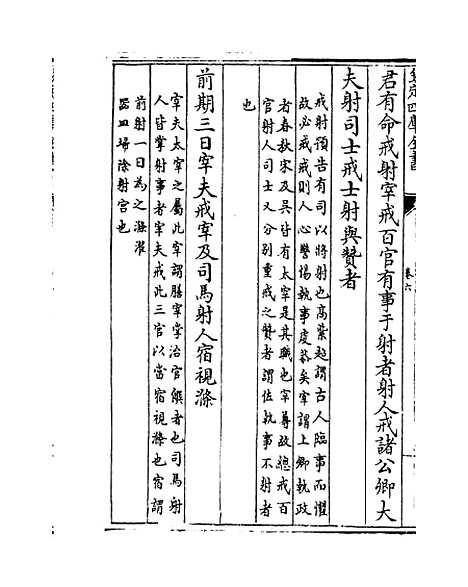 欽定四庫全書
卷六
君有命戒射宰戒百官有事于射者射人戒諸公卿大
夫射司士戒士射與贊者
戒射預告有司以將射也髙紫超謂古人臨事而懼
故必戒戒則人心警惕執事虔恭矣宰謂上卿執政
者春秋宋及吴皆有太宰是其職也宰尊故總戒百
官射人司士又分别重戒之贊者謂佐執事不射者
也
前期三日宰夫戒宰及司馬射人宿視滌
宰夫太宰之屬此宰謂膳宰掌治官饌者也司馬射
人皆掌射事者宰夫戒此三官以當宿視滌也宿謂
前射一日為之滌濯
器皿埽除射宫也